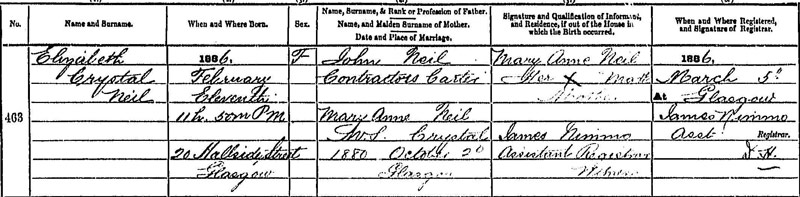 No.
Name and Surname.
When and Where Born.
Sex.
Name, Surname, & Rank or Profession of Father.
Name, and Maiden Surname of Mother.
Date and Place of Marriage.
Signature and Qualification of Informant,
and Residence, if out of the House in
which the Birth occurred.
When and Where Registered,
and Signature of Registrar.
463
Elizabeth
Crystal
Neil
1886,
February
Eleventh
11h. 50m PM
20 Hallside Street
Glasgow
F
John Neil
Contractors Carter
Mary Anne Neil
M.S. Crystal
1880 October 20
Glasgow
Mary Anne Neil
Her X Mark
Mother
James Nimmo
Assistant Registrar
Witness
1886,
March 5th
At Glasgow
James Nimmo
Asst Registrar.